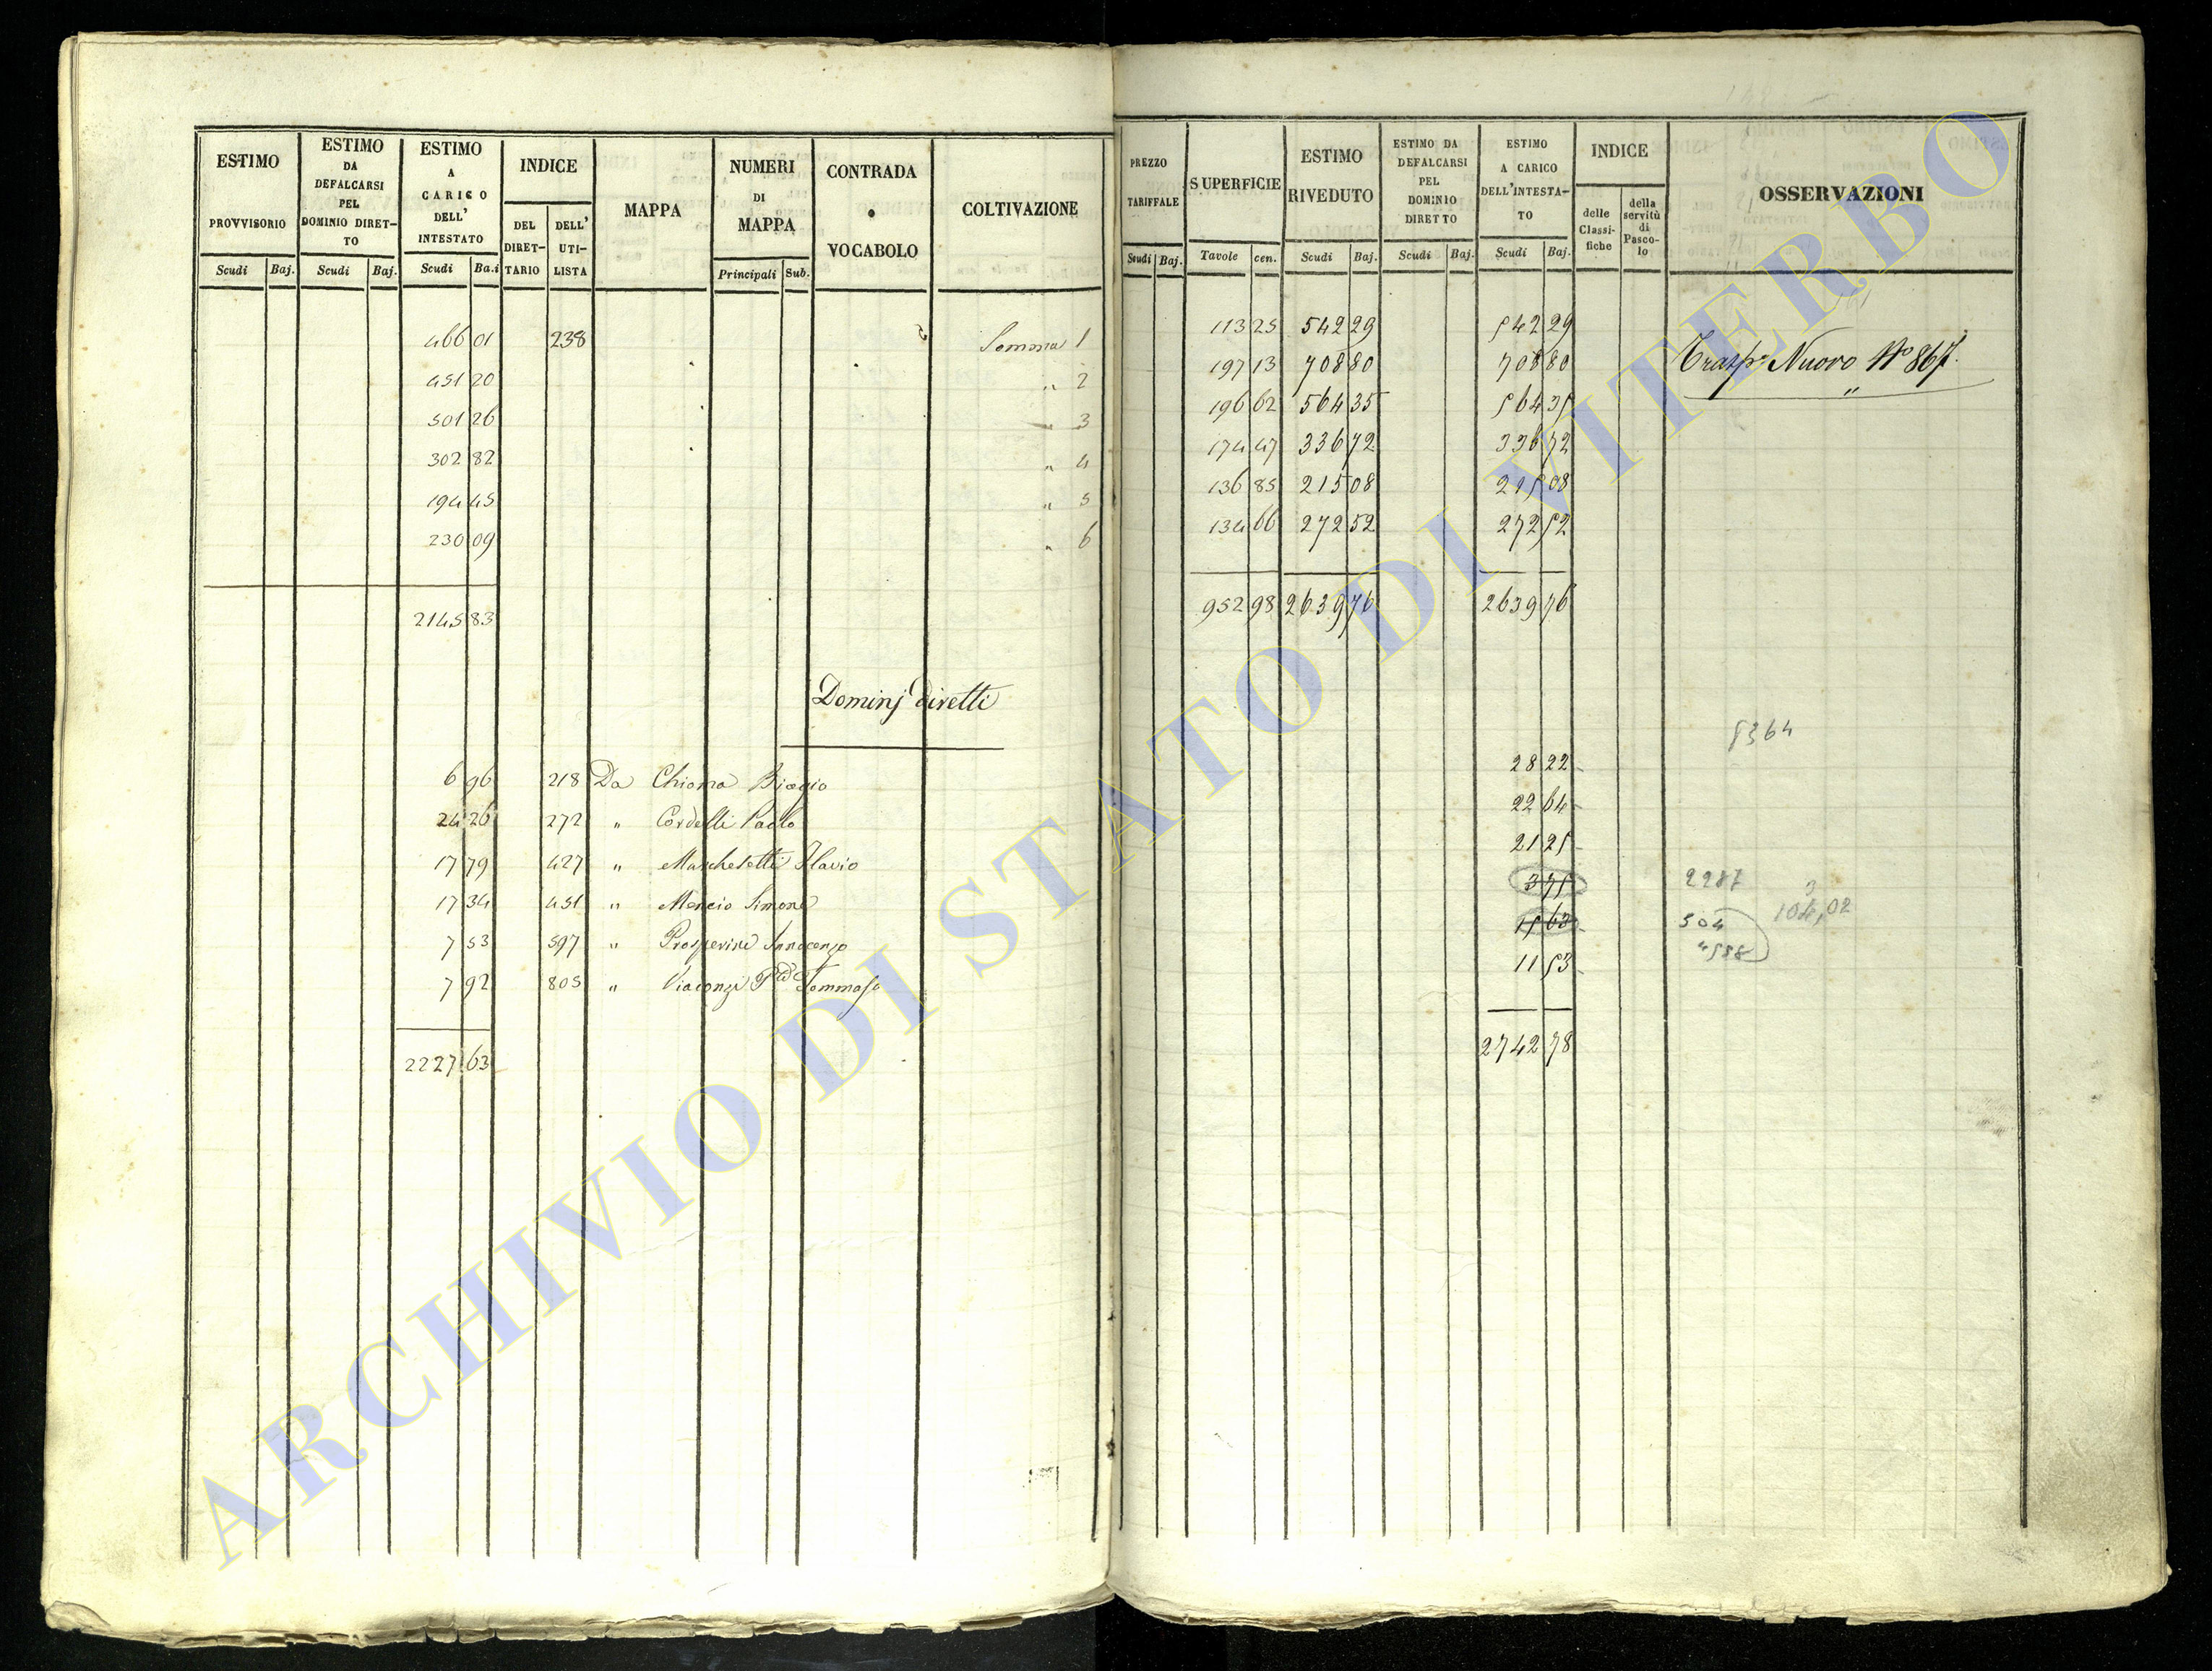 ESTIMO PROVVISORIO
ESTIMO DA DEFALCARSI PEL DOMINIO DIRET-TO
ESTIMO A CARICO DELL' INTESTATO
INDICE
DEL DIRET-TARIO
DELL' UTI-LISTA
MAPPA
NUMERI DI MAPPA
CONTRADA o VOCABOLO
COLTIVAZIONE
Scudi Baj. Scudi Baj. Scudi Ba.i Principali Sub.
466 01 238 Somma 1
451 20 " 2
501 26 " 3
302 82 " 4
194 45 " 5
230 09 " 6
2145 83
Dominj diretti
6 96 218 Da Chioma Biagio
24 26 272 " Cordelli Paolo
17 79 427 " Marchetti Flavio
17 34 451 " Mencio Simone
7 53 597 " Prosperini Innocenzo
7 92 805 " Tommaso
2227 63
PREZZO TARIFFALE
SUPERFICIE
ESTIMO RIVEDUTO
ESTIMO DA DEFALCARSI PEL DOMINIO DIRETTO
ESTIMO A CARICO DELL'INTESTA-TO
INDICE
delle Classi-fiche
della servitù di Pasco-lo
OSSERVAZIONI
Scudi Baj. Tavole cen. Scudi Baj. Scudi Baj. Scudi Baj.
113 25 542 29 542 29
197 13 708 80 708 80 Trasp. Nuovo No 867.
196 62 564 35 564 35
174 47 336 72 336 72
136 85 215 08 215 08
134 66 272 52 272 52
952 98 2639 76 2639 76
5364
28 22
22 64
21 25
3 75 2287
15 63 504
11 53
2742 78
ARCHIVIO DI STATO DI VITERBO